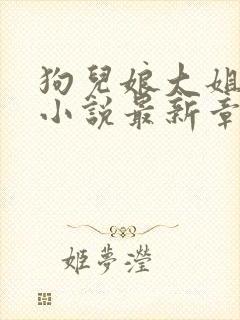 狗兒娘大姐
小說最新章
姬夢瀅